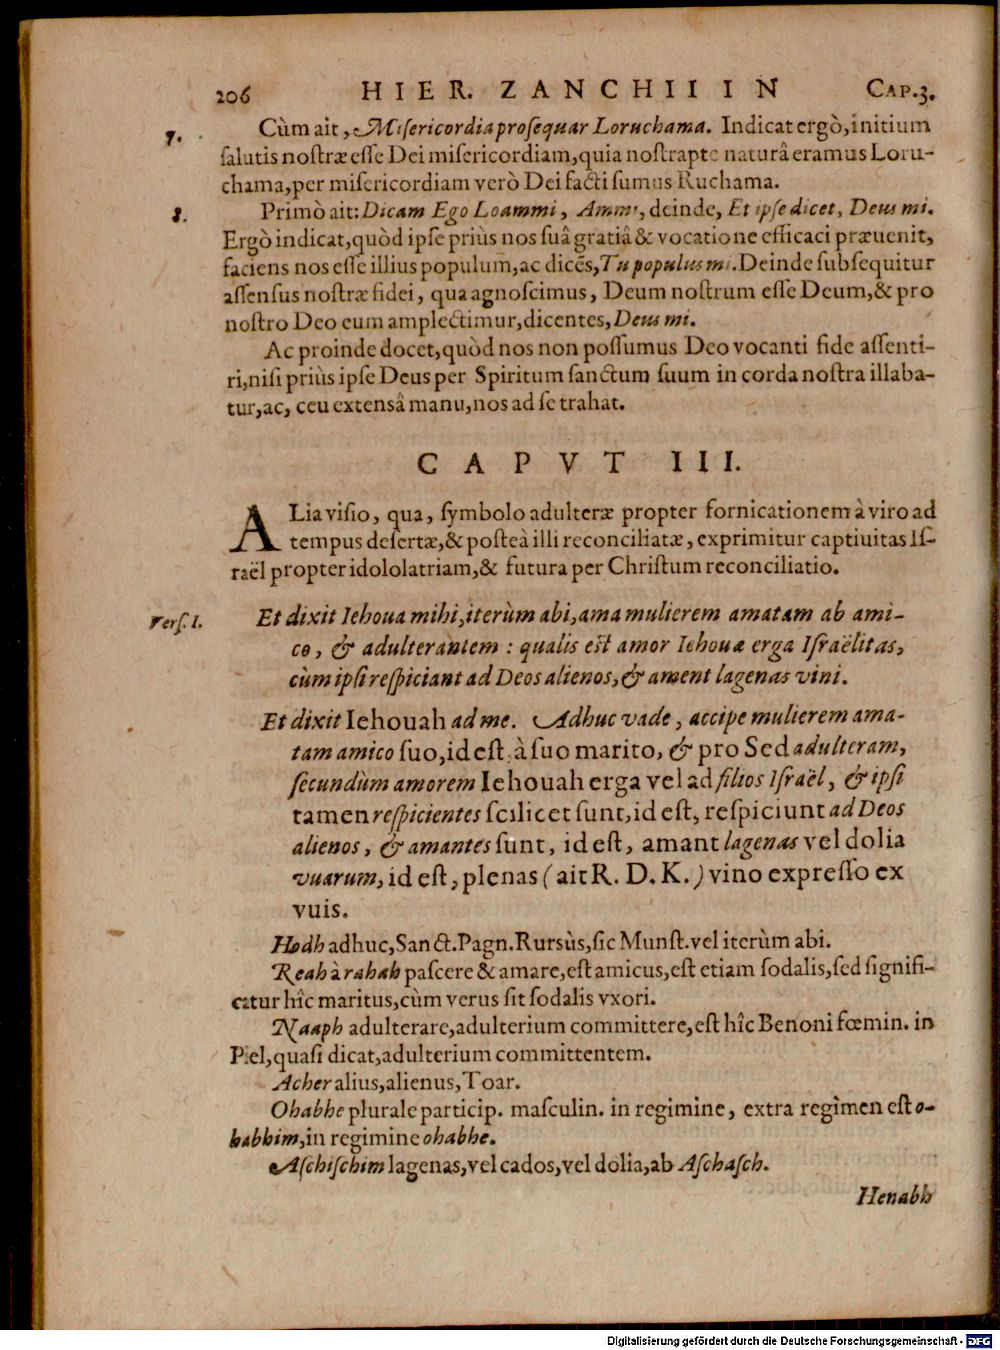 206 HIER. ZANCHII IN CAP.3.
7. Cùm ait, Miſericordia proſequar Loruchama. Indicat ergò, initium
ſalutis noſtræ eſſe Dei miſericordiam, quia noſtrapte naturâ eramus Loru-
chama, per miſericordiam verò Dei facti ſumus Ruchama.
8. Primò ait: Dicam Ego Loammi, Ammi, deinde, Et ipſe dicet, Deus mi.
Ergò indicat, quòd ipſe priùs nos ſuâ gratiâ & vocatione efficaci præuenit,
faciens nos eſſe illius populum, ac dicẽs, Tu populus mi. Deinde ſubſequitur
aſſenſus noſtræ fidei, qua agnoſcimus, Deum noſtrum eſſe Deum, & pro
noſtro Deo eum amplectimur, dicentes, Deus mi.
Ac proinde docet, quòd nos non poſſumus Deo vocanti fide aſſenti-
ri, niſi priùs ipſe Deus per Spiritum ſanctum ſuum in corda noſtra illaba-
tur, ac, ceu extensâ manu, nos ad ſe trahat.
CAPVT III.
ALia viſio, qua, ſymbolo adulteræ propter fornicationem à viro ad
tempus deſertæ, & poſteà illi reconciliatæ, exprimitur captiuitas Iſ-
raël propter idololatriam, & futura per Chriſtum reconciliatio.
Verſ. 1. Et dixit Iehoua mihi, iterùm abi, ama mulierem amatam ab ami-
co, & adulterantem : qualis eſt amor Iehouæ erga Iſraëlitas,
cùm ipſi reſpiciant ad Deos alienos, & ament lagenas vini.
Et dixit Iehouah ad me. Adhuc vade, accipe mulierem ama-
tam amico ſuo, id eſt à ſuo marito, & pro Sed adulteram,
ſecundùm amorem Iehouah erga vel ad filios Iſraël, & ipſi
tamen reſpicientes ſcilicet ſunt, id eſt, reſpiciunt ad Deos
alienos, & amantes ſunt, id eſt, amant lagenas vel dolia
vuarum, id eſt, plenas (ait R. D. K.) vino expreſſo ex
vuis.
Hodh adhuc, Sanct. Pagn. Rursùs, ſic Munſt. vel iterùm abi.
Reah à rahah paſcere & amare, eſt amicus, eſt etiam ſodalis, ſed ſignifi-
catur hîc maritus, cùm verus ſit ſodalis vxori.
Naaph adulterare, adulterium committere, eſt hîc Benoni fœmin. in
Piel, quaſi dicat, adulterium committentem.
Acher alius, alienus, Toar.
Ohabhe plurale particip. maſculin. in regimine, extra regimen eſt o-
habhim, in regimine ohabhe.
Aſchiſchim lagenas, vel cados, vel dolia, ab Aſchaſch.
Henabh
Digitalisierung gefördert durch die Deutsche Forschungsgemeinschaft - DFG